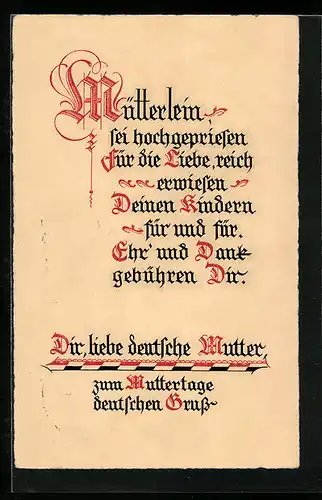 Mütterlein,
sei hochgepriesen
Für die Liebe, reich
erwiesen
Deinen Kindern
für und für.
Ehr' und Dank
gebühren Dir.
Dir, liebe deutsche Mutter,
zum Muttertage
deutschen Gruß